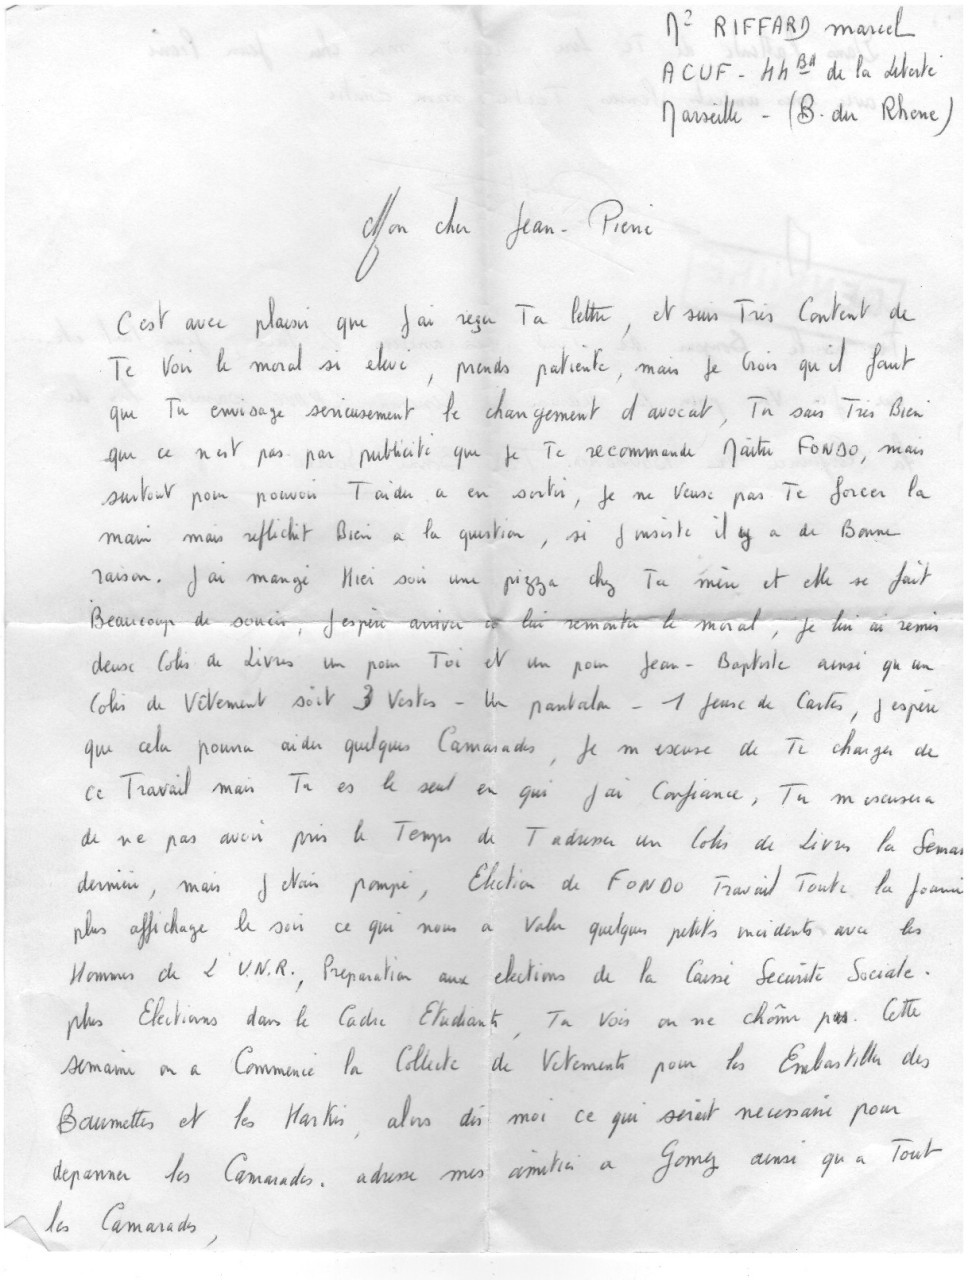 Mr RIFFARD marcel
ACUF - 44 Bd de la Liberté
Marseille - (B. du Rhone)
Mon cher Jean-Pierre
C'est avec plaisir que J'ai reçu Ta lettre, et suis Très Content de
Te Voir le moral si elevé, prends patiente, mais Je Crois qu'il faut
que Tu envisage serieusement le changement d'avocat, Tu sais Très Bien
que ce n'est pas par publicité que Je Te recommande Maître FONDO, mais
surtout pour pouvoir T'aider a en sortir, Je ne Veux pas Te forcer la
main mais reflechit Bien a la question, si J'insiste il y a de Bonne
raison. J'ai mangé Hier soir une pizza chez Ta mère et elle se fait
Beaucoup de soucis, J'espère arriver a lui remonter le moral, Je lui ai remis
deux Colis de Livres un pour Toi et un pour Jean-Baptiste ainsi qu'un
Colis de Vêtement soit 3 Vestes - Un pantalon - 1 Jeux de Cartes, J'espère
que cela pourra aider quelques Camarades, Je m'excuse de Te charger de
ce Travail mais Tu es le seul en qui J'ai Confiance, Tu m'excusera
de ne pas avoir pris le Temps de T'adresser un Colis de Livres la Semai
derniere, mais J'etais pompé, Election de FONDO Travail Toute la Journé
plus affichage le soir ce qui nous a Valu quelques petits incidents avec les
Hommes de L'U.N.R., Preparation aux elections de la Caisse Securité Sociale.
plus Elections dans le Cadre Etudiants, Tu Vois on ne chôme pas. Cette
semaine on a Commencé la Collecte de Vetements pour les Embastillés des
Baumettes et les Harkis, alors dis moi ce qui serait necessaire pour
depanner les Camarades. adresse mes amitiés a Gomez ainsi qu'a Tout
les Camarades,